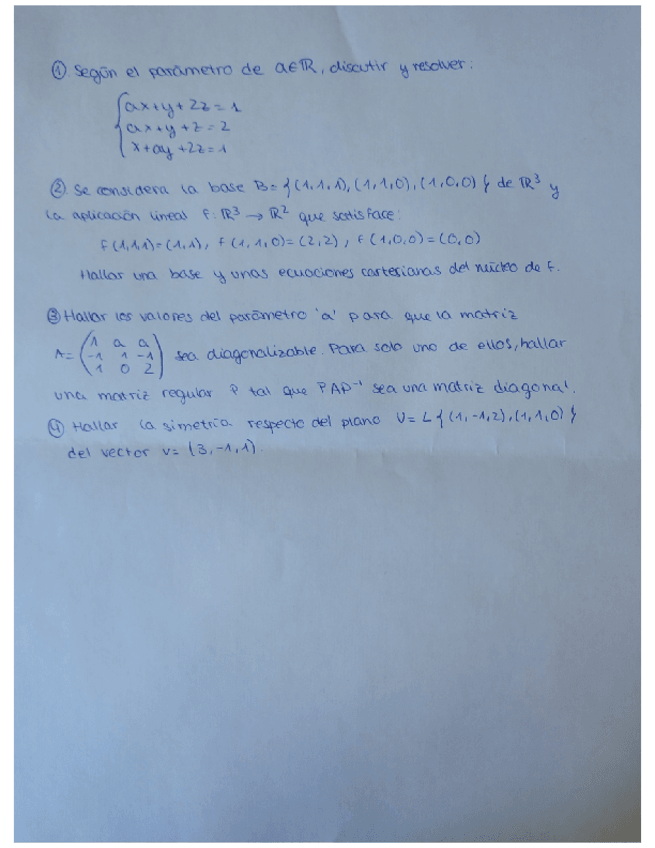 ① Según el parámetro de a∈ℝ, discutir y resolver:
ax+y+2z=1
ax+y+z=2
x+ay+2z=1
② Se considera la base B={(1,1,1),(1,1,0),(1,0,0)} de ℝ³ y
la aplicación lineal f:ℝ³→ℝ² que satisface:
f(1,1,1)=(1,1), f(1,1,0)=(2,2), f(1,0,0)=(0,0)
Hallar una base y unas ecuaciones cartesianas del núcleo de f.
③ Hallar los valores del parámetro 'a' para que la matriz
A=(1 a a
-1 1 -1
1 0 2) sea diagonalizable. Para solo uno de ellos, hallar
una matriz regular P tal que PAP⁻¹ sea una matriz diagonal.
④ Hallar la simetría respecto del plano U=L{(1,-1,2),(1,1,0)}
del vector v=(3,-1,1).